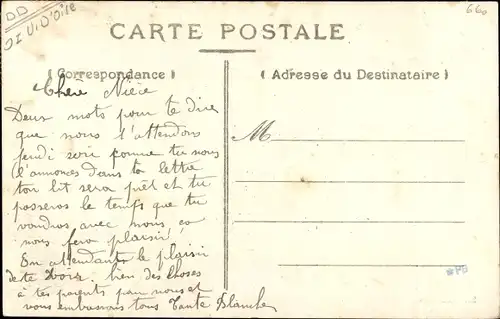 DD
D I V. D'Oise
660
CARTE POSTALE
( Correspondance )
( Adresse du Destinataire )
Chère Nièce
Deux mots pour te dire
que nous t'attendons
jeudi soir comme tu nous
l'annonces dans ta lettre
ton lit sera prêt et tu
passeras le temps que tu
voudras avec nous, ça
nous fera plaisir,
En attendant le plaisir
de te voir. bien des choses
à tes parents par nous et
nous embrassons tous Tante Blanche
M